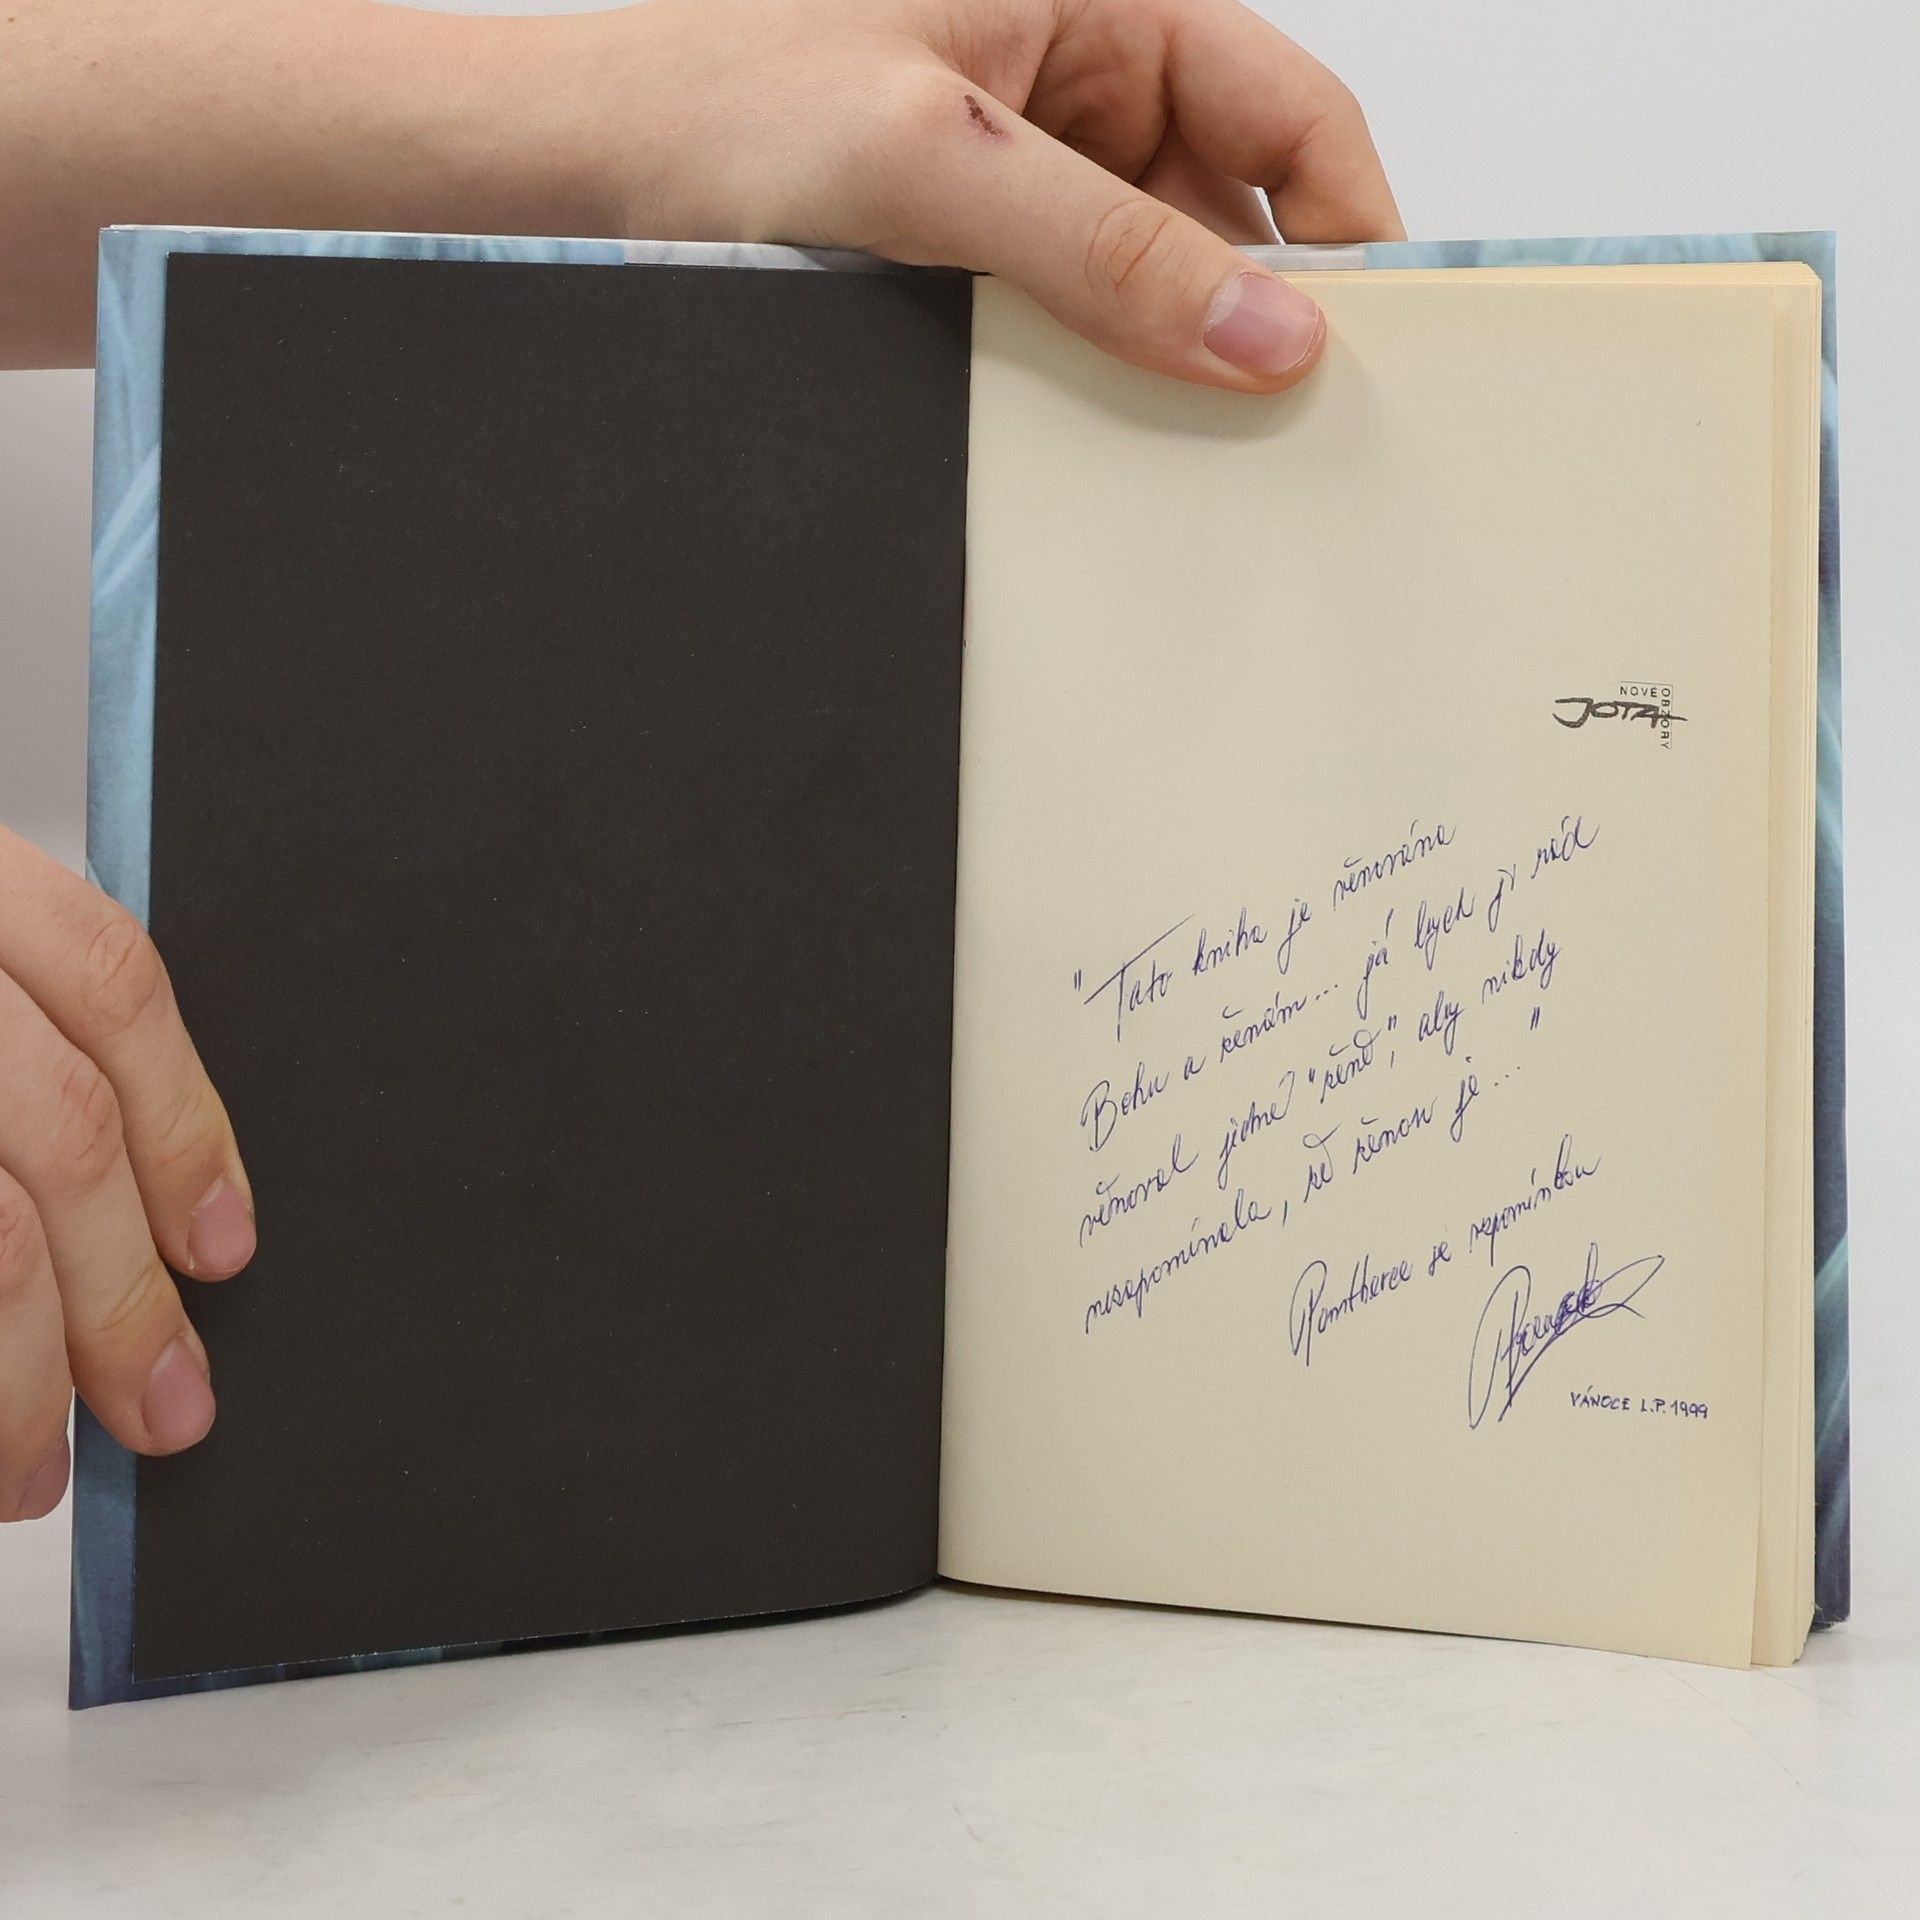 NOVÉ OBZORY
JOTA
"Tato kniha je věnována
Bohu a ženám... já bych ji rád
věnoval jedné "ženě", aby nikdy
nezapomínala, že ženou je..."
Pantherce se vzpomínkou
VÁNOCE L.P. 1999